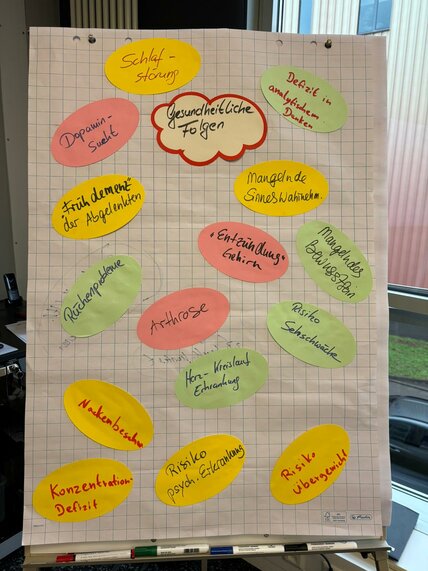 Schlaf-
störung
Defizit in
analytischem
Denken
Gesundheitliche
Folgen
Dopamin-
Sucht
Mangelnde
Sinneswahrnehm.
"Frühdemenz"
der Abgelenkten
"Entzündung"
Gehirn
Mangelndes
Bewusstsein
Rückenprobleme
Arthrose
Risiko
Sehschwäche
Herz-Kreislauf
Erkrankung
Nackenbeschw.
Risiko
psych. Erkrankung
Risiko
übergewicht
Konzentration-
Defizit
FSC
herlitz